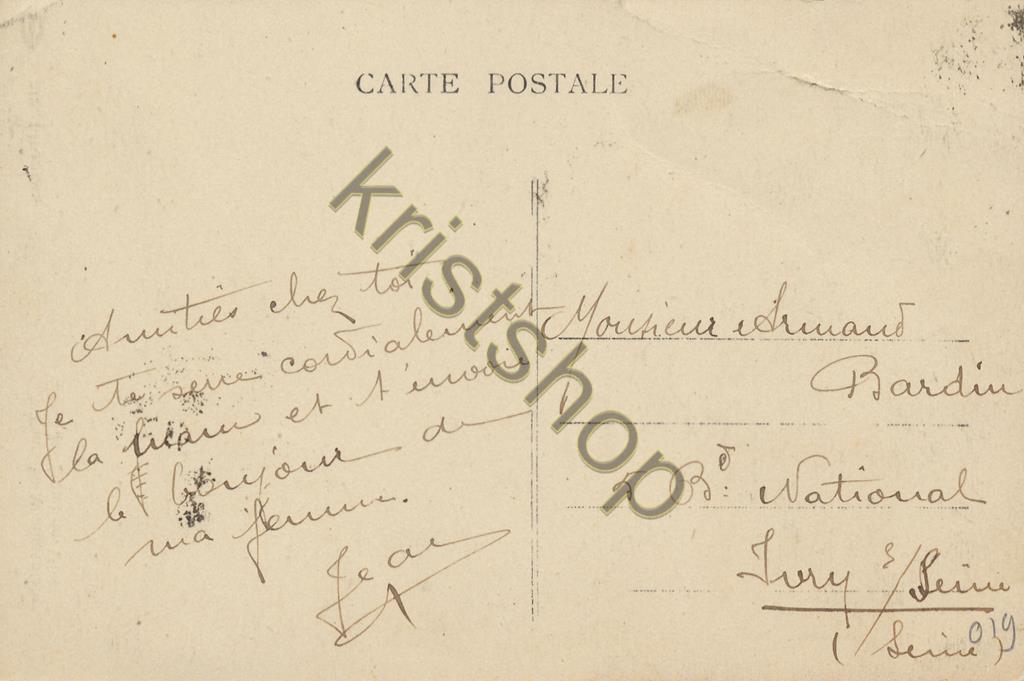 CARTE POSTALE
Amitiés chez toi
Je te serre cordialement
la main et t'envoie
le bonjour de
ma femme.
Jean
Monsieur Armand
Bardin
5 Bd. National
Ivry s/Seine
(Seine)
019
kristshop